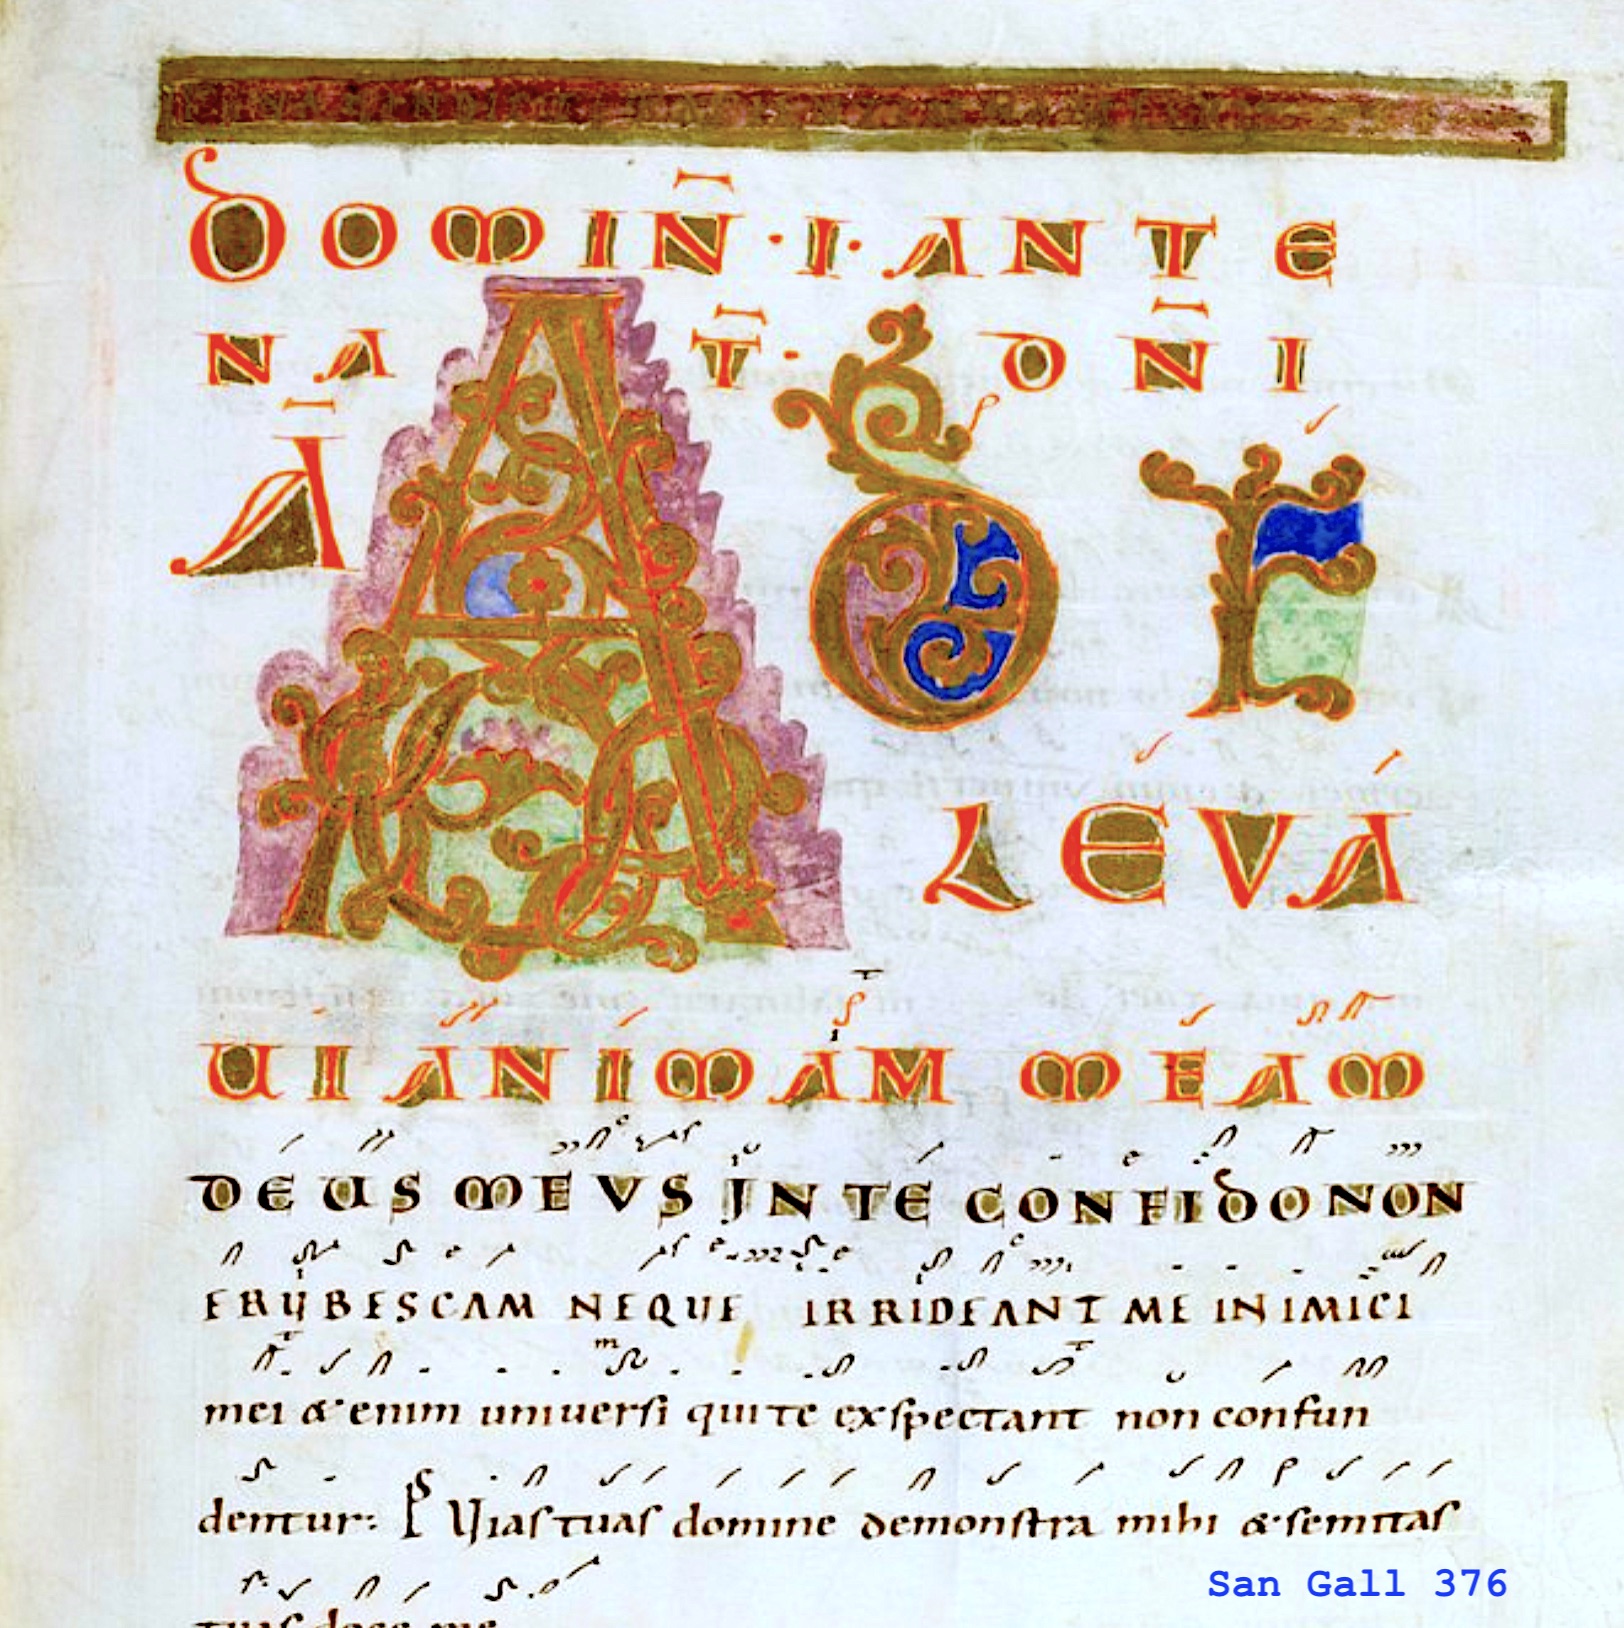 DOMIN̄·I·ANTE
NAT̄·DN̄I
Ā AD TE
LEVA
UI ANIMAM MEAM
DEUS MEVS IN TE CONFIDO NON
ERUBESCAM NEQUE IRRIDEANT ME INIMICI
mei & enim uniuersi qui te exspectant non confun
dentur: PS Uias tuas domine demonstra mihi & semitas
tuas doce me
San Gall 376